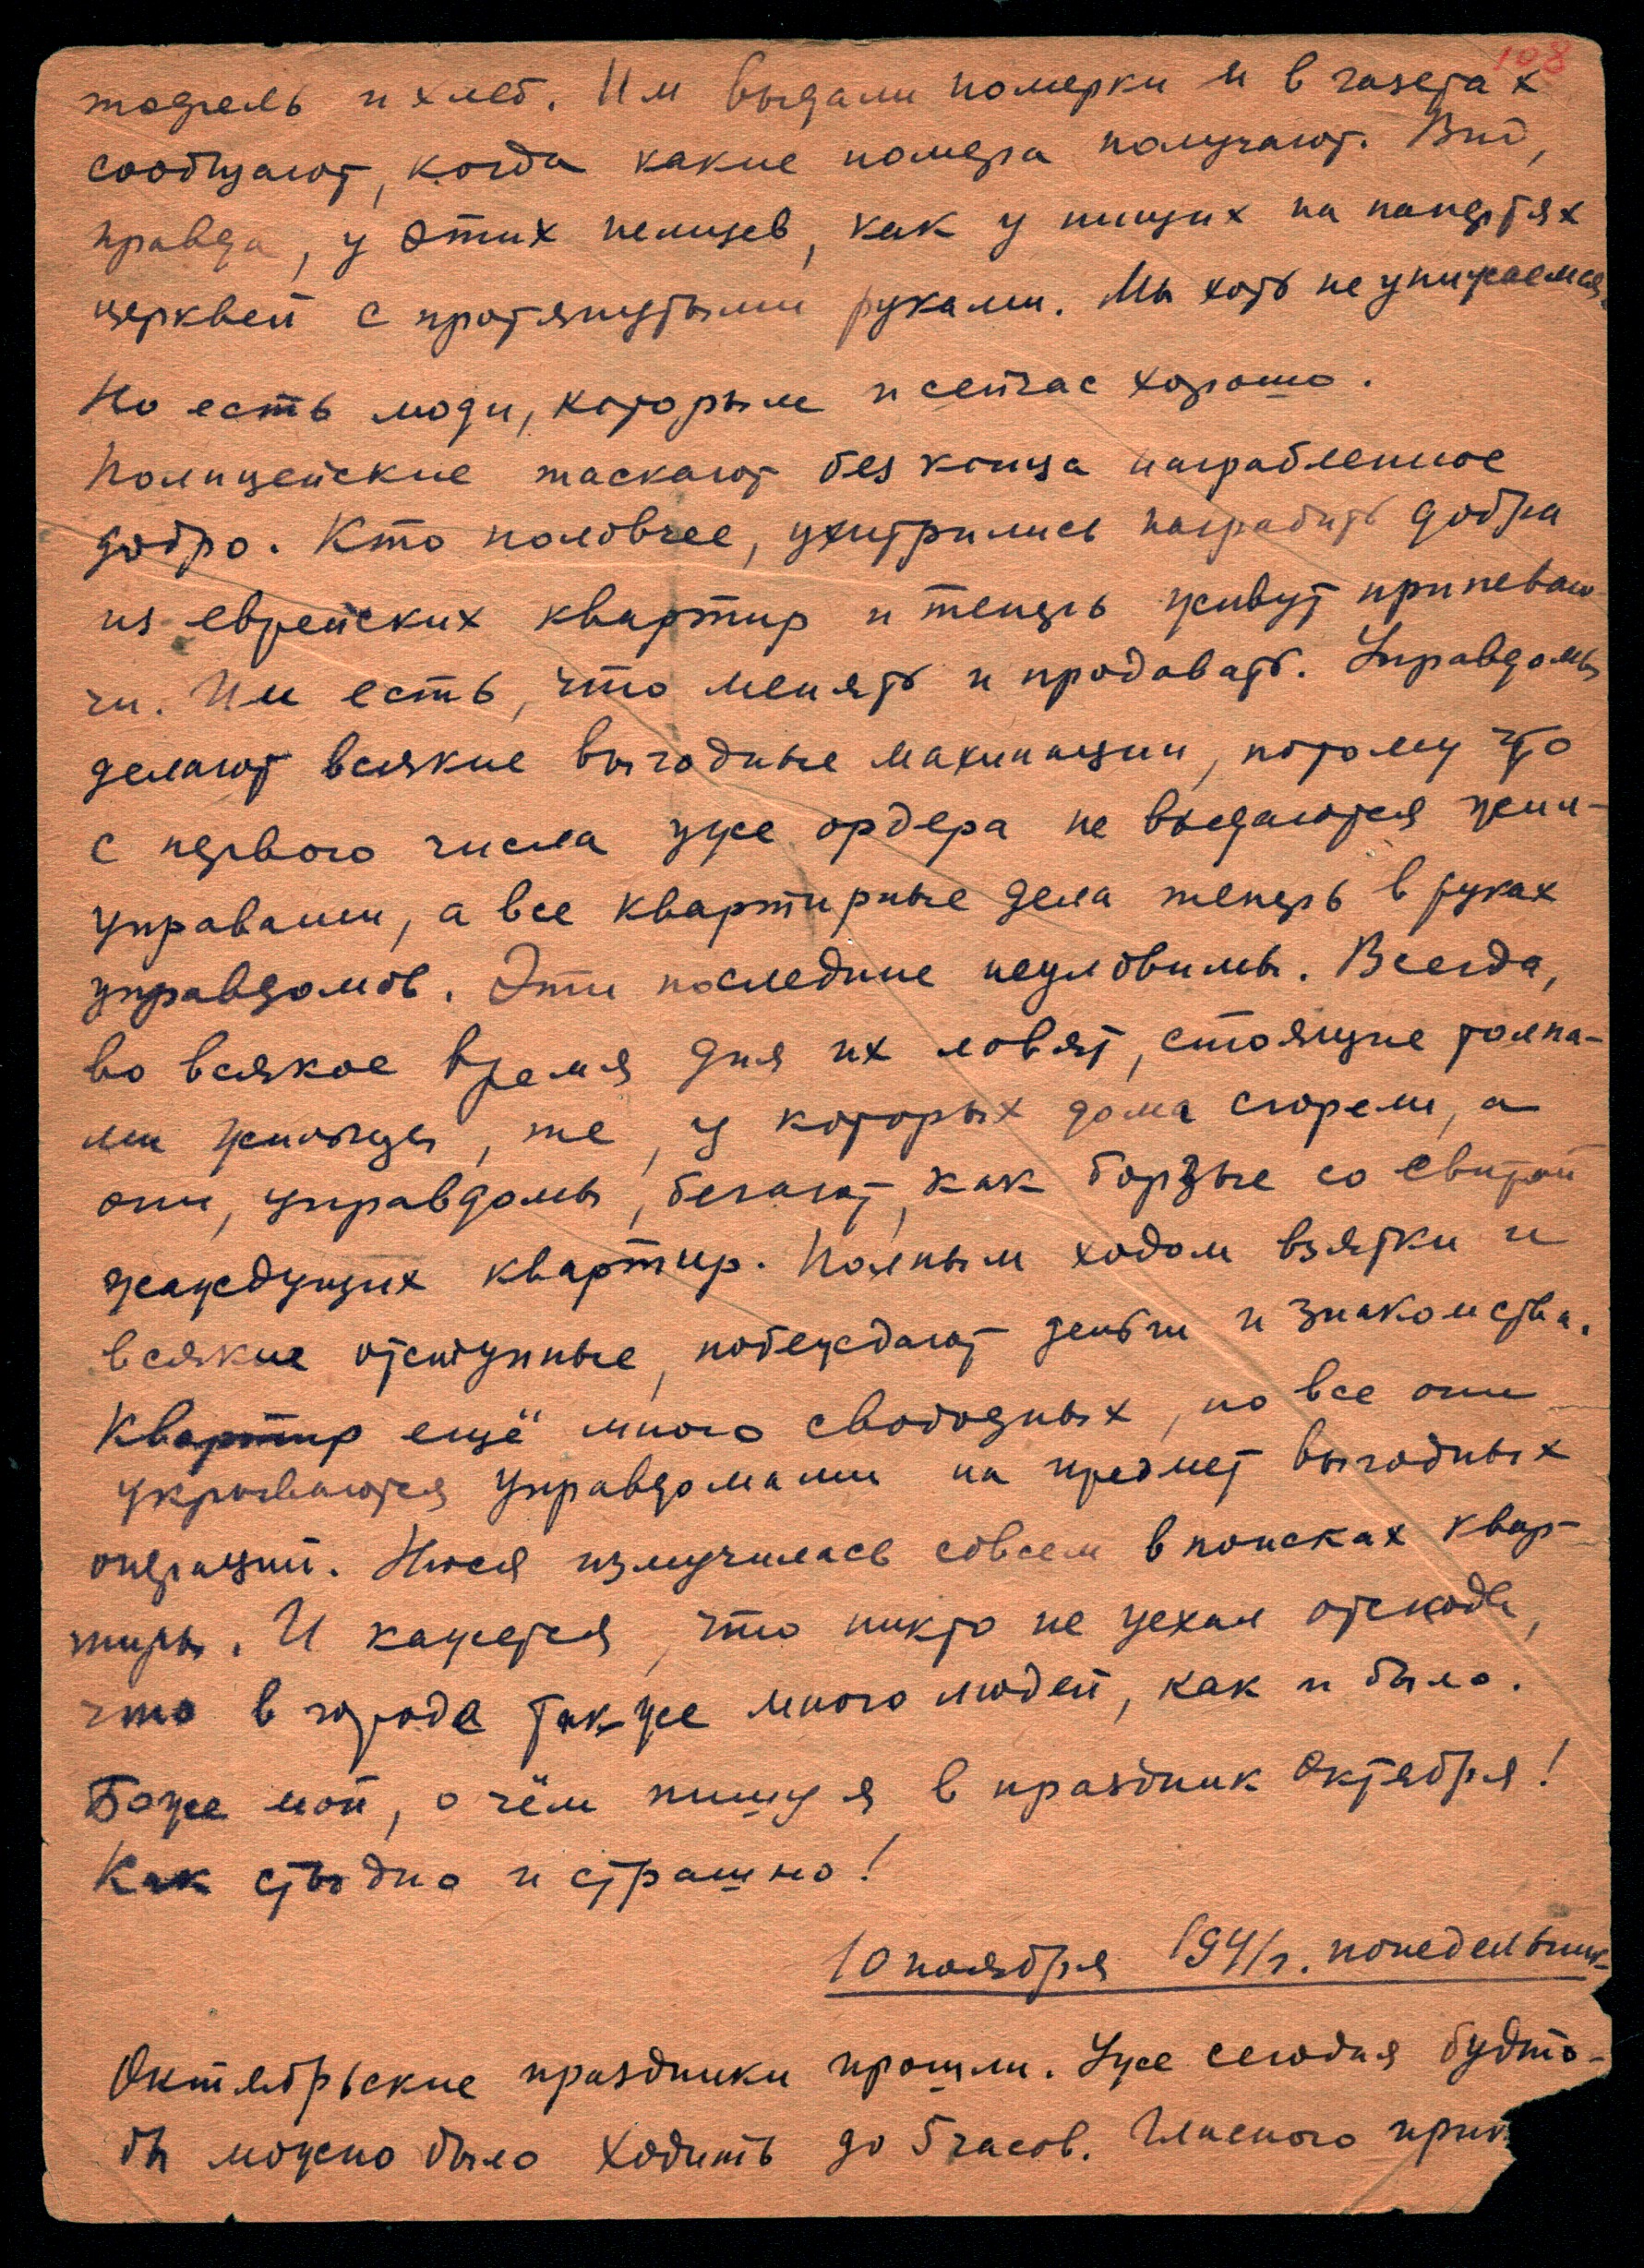 108
тофель и хлеб. Им выдали номерки и в газетах
сообщают, когда какие номера получают. Вид,
правда, у этих немцев, как у нищих на папертях
церквей с протянутыми руками. Мы хоть не унижаемся.
Но есть люди, которым и сейчас хорошо.
Полицейские таскают без конца награбленное
добро. Кто половчее, ухитрились награбить добра
из еврейских квартир и теперь живут припеваю
чи. Им есть, что менять и продавать. Управдомы
делают всякие выгодные махинации, потому что
с первого числа уже ордера не выдаются жил-
управами, а все квартирные дела теперь в руках
управдомов. Эти последние неуловимы. Всегда,
во всякое время дня их ловят, стоящие толпа-
ми жильцы, те, у которых дома сгорели, а
они, управдомы, бегают, как борзые со свитой
жаждущих квартир. Полным ходом взятки и
всякие отступные, побеждают деньги и знакомства.
Квартир ещё много свободных, но все они
укрываются управдомами на предмет выгодных
операций. Нюся измучилась совсем в поисках квар-
тиры. И кажется, что никто не уехал отсюда,
что в городе также много людей, как и было.
Боже мой, о чём пишу я в праздник Октября!
Как стыдно и страшно!
10 ноября 1941 г. понедельник
Октябрьские праздники прошли. Уже сегодня будто-
бы можно было ходить до 5 часов. Гласного